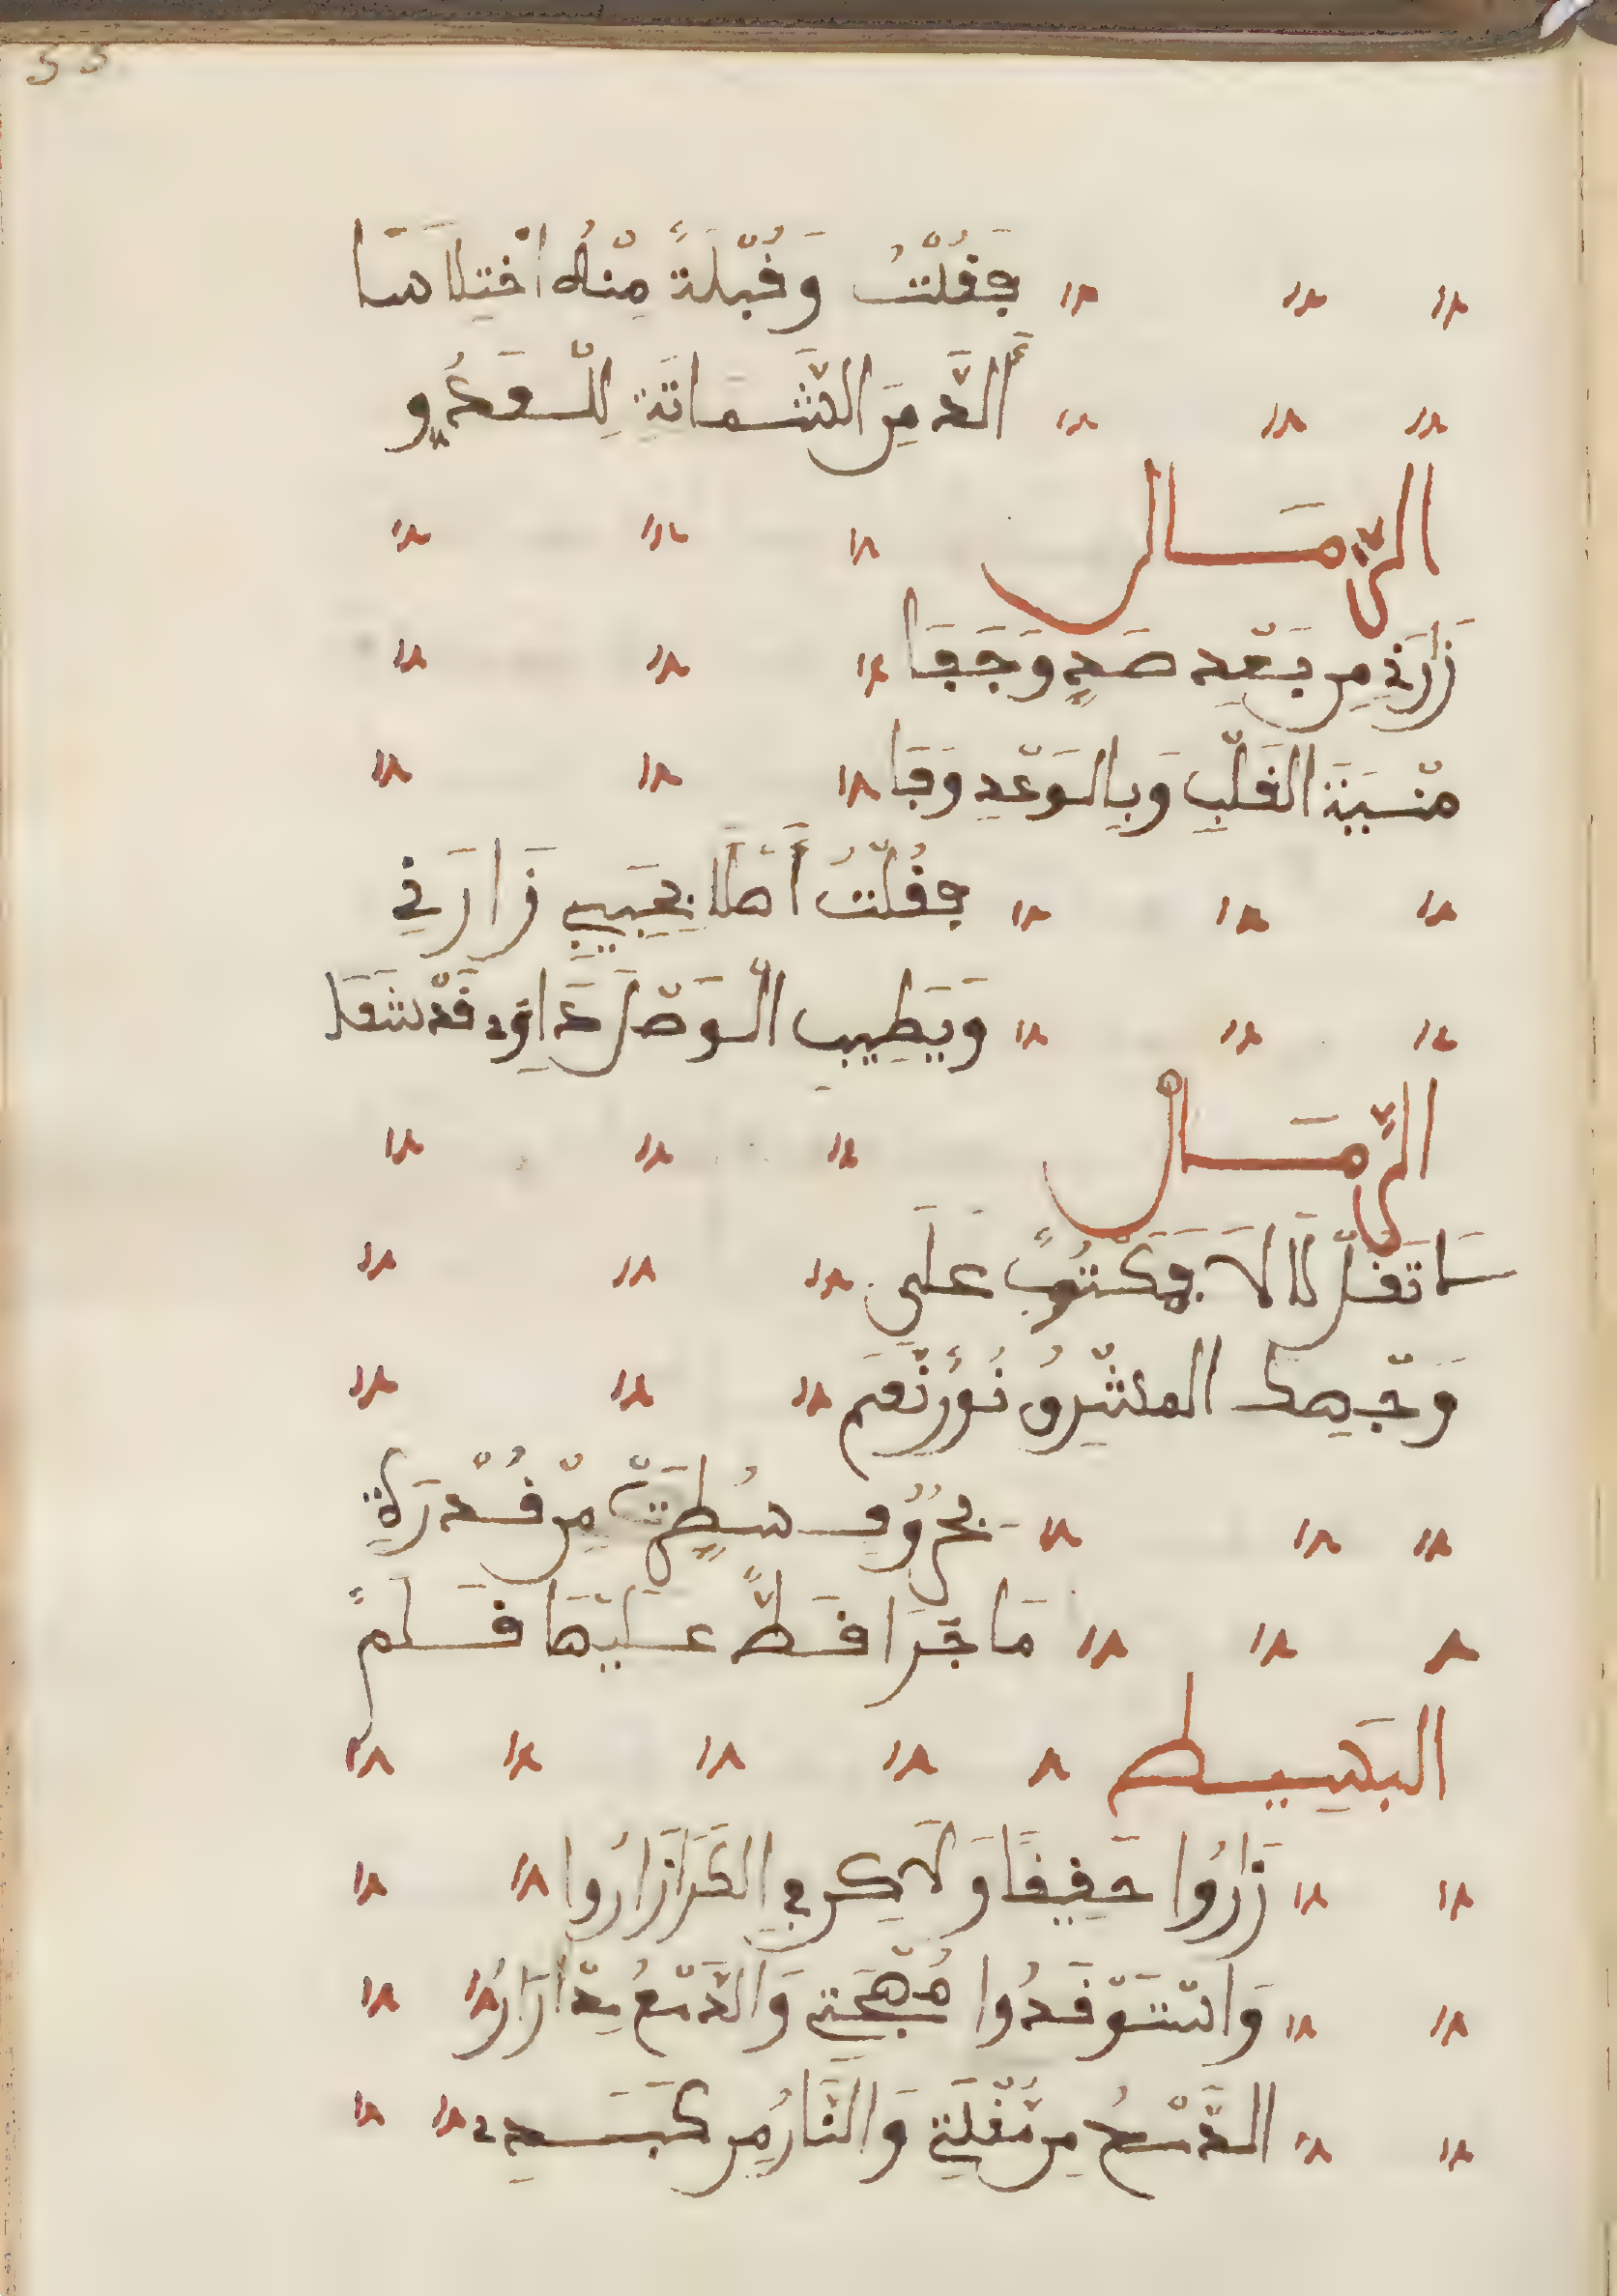 55
فقُلْتُ وَقُبْلَةً مِنْهُ اخْتِلَاسَا
أَلَذَّ مِنَ الشَّمَاتَةِ لِلْعَدُوِّ
الرَّمَال
زَارَنِي مِن بَعْدِ صَدٍّ وَجَفَا
مُنْيَةَ القَلْبِ وَبِالوَعْدِ وَفَا
فقُلْتُ أَهْلًا بِحَبِيبٍ زَارَنِي
وَيَطِيبِ الْوَصْلِ دَاوِي قَدْ شَفَا
الرَّمَال
لَا تَقُلْ لَا لَا فَمَكْتُوبٌ عَلَى
وَجْهِكَ المُشْرِقُ نُورٌ نْعَم
بِحُرُوفٍ سُطِرَتْ مِنْ قُدْرَةٍ
مَا جَرَا قَطُّ عَلَيْهَا قَلَمٌ
البَسِيط
زَارُوا خَفِيفًا وَلَاكِن فِي الكَرَا زَارُوا
وَاسْتَوْقَدُوا مُهْجَتِي وَالدَّمْعُ مِدْرَارُ
الدَّمْعُ مِن مُّقْلَتِي وَالنَّارُ مِن كَبَدِي